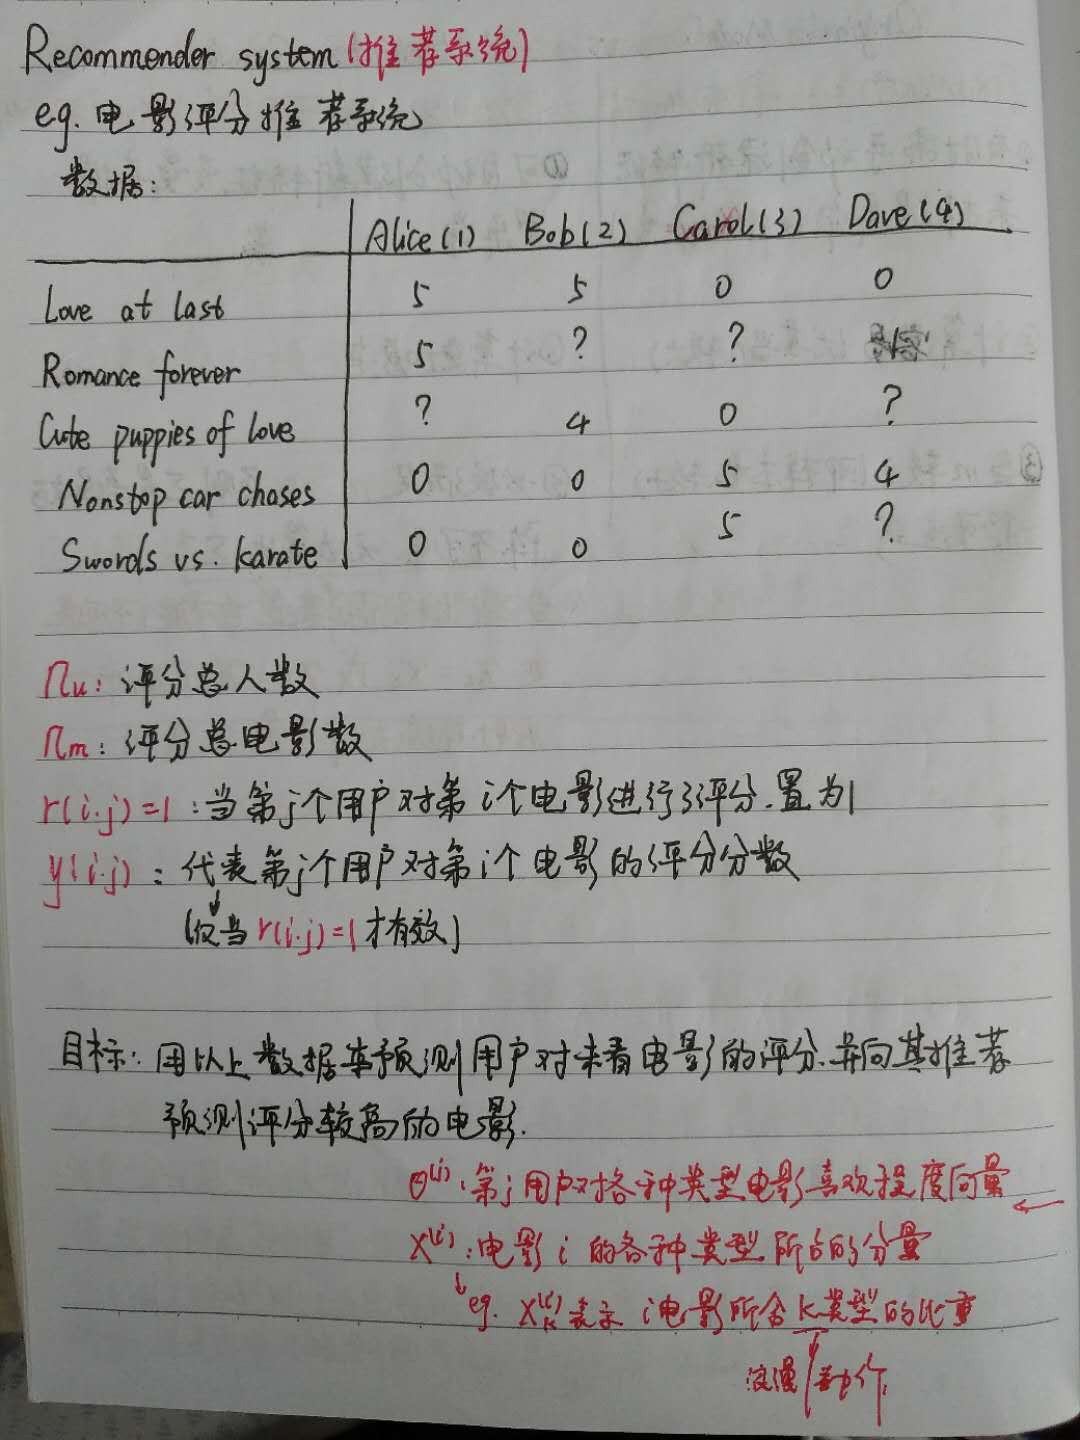 Recommender system (推荐系统)
eg. 电影评分推荐系统
数据:
Alice(1) Bob(2) Carol(3) Dave(4)
Love at last 5 5 0 0
Romance forever 5 ? ?
Cute puppies of love ? 4 0 ?
Nonstop car chases 0 0 5 4
Swords vs. karate 0 0 5 ?
nu: 评分总人数
nm: 评分总电影数
r(i.j)=1: 当第j个用户对第i个电影进行了评分.置为1
y(i.j): 代表第j个用户对第i个电影的评分分数
(仅当r(i.j)=1才有效)
目标: 用以上数据来预测用户对未看电影的评分.并向其推荐
预测评分较高的电影.
θ(j): 第j用户对各种类型电影喜欢程度向量 ←
X(i): 电影i的各种类型所占的分量
↓eg. Xk(i)表示i电影所含k类型的比重
浪漫/动作